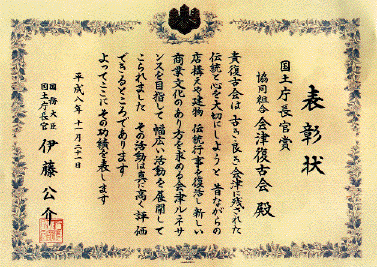 表彰状
国土庁長官賞
協同組合 会津復古会 殿
貴復古会は 古き良き会津に残された
伝統と心を大切にしようと 昔ながらの
店構えや建物 伝統行事を復活し新しい
商業文化のあり方を求める会津ルネサ
ンスを目指して 幅広い活動を展開して
こられました その活動は真に高く評価
できるところであります
よってここにその功績を表します
平成八年十一月二十一日
国務大臣
国土庁長官 伊藤公介